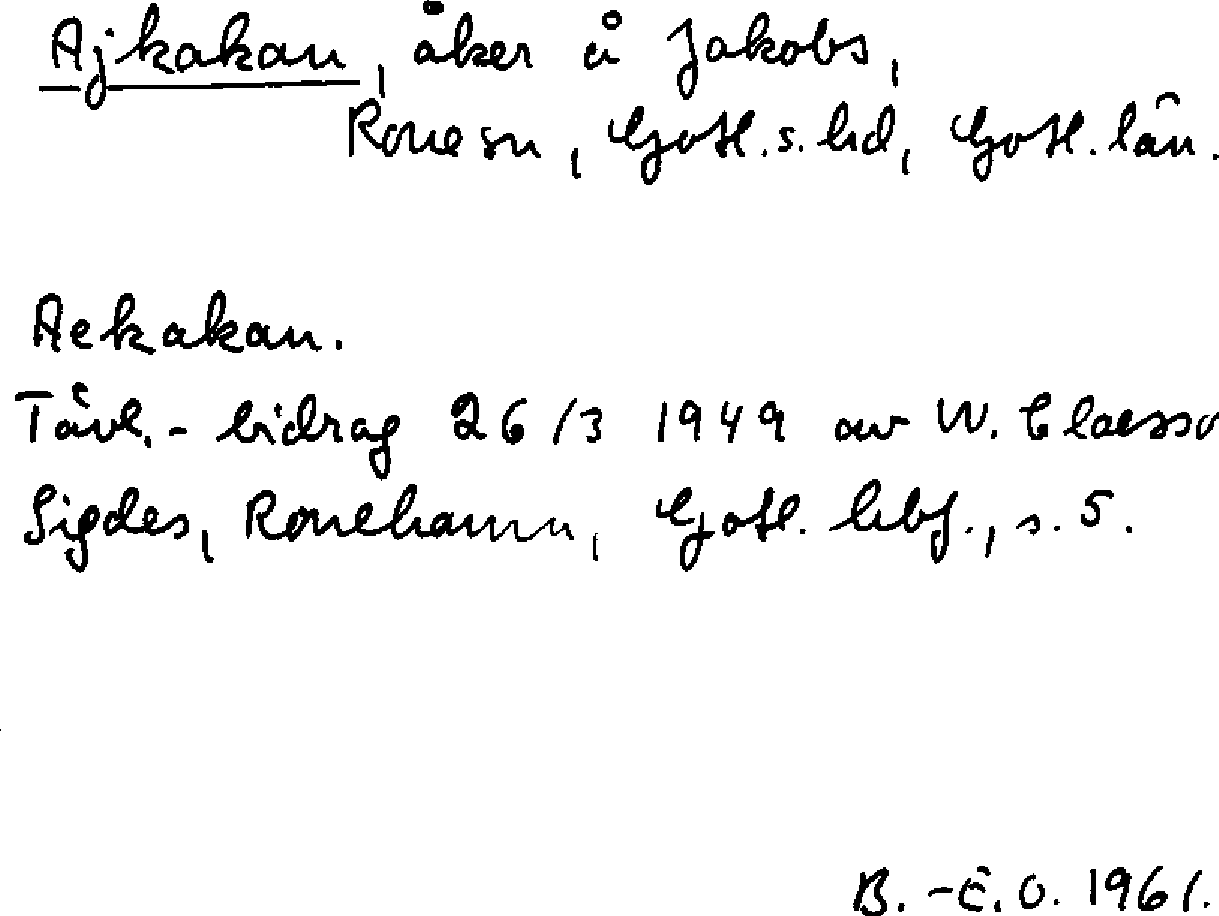 Ajkakan, åker å Jakobs,
Rone sn, Gotl. s. hd, Gotl. län.
Aekakan.
Tävl.- bidrag 26/3 1949 av W. Claesso
Sigdes, Ronehamn, Gotl. hbf., s. 5.
B. -E. O. 1961.